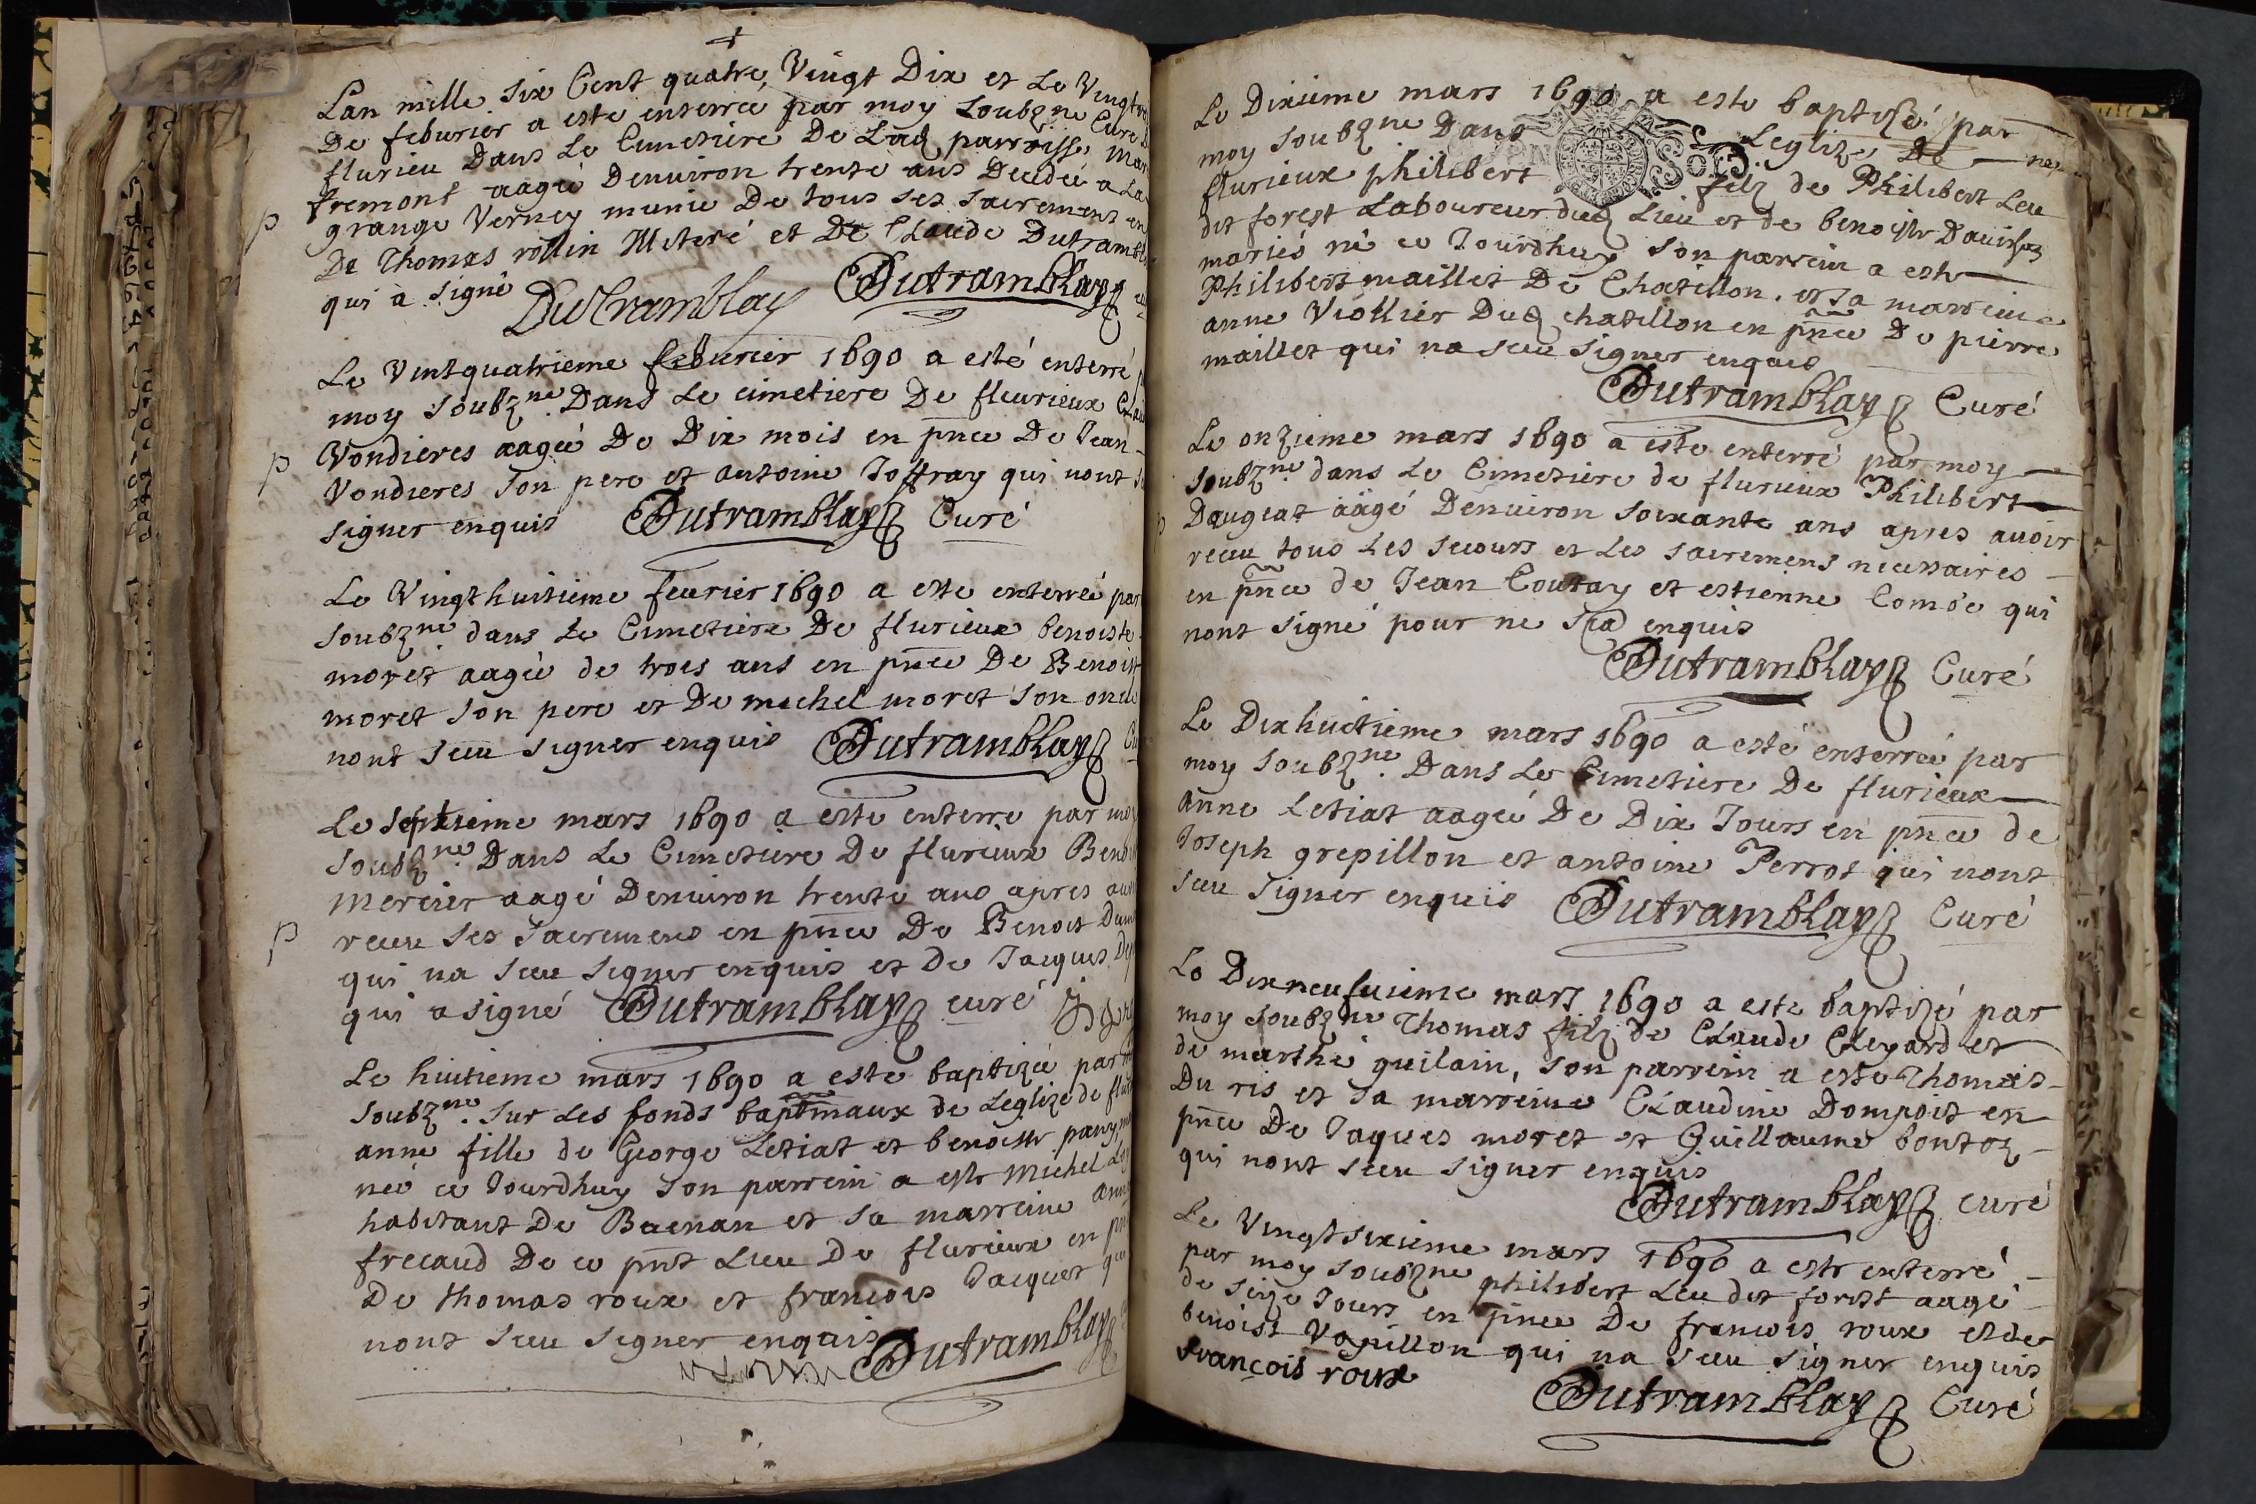 Lan mille six Cent quatre Vingt Dix et Le
De feburier a este enterree par moy soubz.ne Curé
flurieu Dans Le Cimetiere De Lad parroisse
fremont aagée Denuiron trente ans Decedée a La
p
grange Verney munie De tous ses sacremens en
De Thomas rollin Miteré et De Claude
qui a signé DuTramblay Dutramblay
Le Vintquatrieme feburier 1690 a esté enterré
moy soubz.ne Dans Le cimetiere De fleurieux
Vondieres aagée De Dix mois en pnce De Jean
p
Vondieres son pere et antoine Joffray qui nont
signer enquis Dutramblay Curé
Le Vingthuitieme feurier 1690 a este enterreé par
soubz.né dans Le Cimetiere De flurieux benoiste
moret aagée de trois ans en pnce De Benoist
moret son pere et De michel moret son oncle
nont sceu signer enquis Dutramblay
Le septieme mars 1690 a este enterre par moy
soubz.ne Dans Le Cimetiere De flurieux
mercier aagé Denuiron trente ans apres
p
receu ses sacremens en pnce De Benoist
qui na sceu signer enquis et De Jacques
qui a signé Dutramblay curé
Le huitieme mars 1690 a este baptizée par
soubz.ne sur Les fonds baptmaux de Leglize de
anne fille de George Letiat et benoiste
neé ce Jourdhuy son parrein a este Michel
habitant De Baenan et sa marreine
frecaud De ce pnt Lieu De flurieux en
De thomas roux et francois Jacquet
nont sceu signer enquis Dutramblay
Le Dixieme mars 1690 a este baptisé par
moy soubz.ne Dans Leglize De
flurieux philibert filz de Philibert Leu
dit forest Laboureur dud Lieu et de benoiste
mariés né ce Jourdhuy son parrein a este
Philibert maillet De Chatillon. et sa marreine
anne Viollier Dud chatillon en pnce De pierre
maillet qui na sceu signer enquis
Dutramblay Curé
Le onzieme mars 1690 a este enterré par moy
soubz.ne dans Le Cimetiere de flurieux Philibert
Daugeat aâgé Denuiron soixante ans apres auoir
receu tous Les secours et Les sacremens necessaires
en pnce de Jean Coutay et estienne Comte qui
nont signé pour ne enquis
Dutramblay Curé
Le Dixhuitieme mars 1690 a esté enterreé par
moy soubz.ne Dans Le Cimetiere De flurieux
anne Letiat aageé De Dix Jours en pnce de
Joseph grepillon et antoine Perrot qui nont
sceu signer enquis Dutramblay Curé
Le Dixneufuieme mars 1690 a este baptizé par
moy soubz.ne Thomas filz de Claude Cleyard et
de marthe guilain, son parrein a este Thomas
Du ris et sa marreine Claudine Dompoit en
pnce De Jaques moret et Guillaume bontoz
qui nont sceu signer enquis
Dutramblay curé
Le Vingtsixieme mars 1690 a este enterré
par moy soubzne philibert Leu dit forest aagé
de seize Jours en pnce De francois roux et de
benoist Vapillon qui na sceu signer enquis
françois roux
Dutramblay Curé